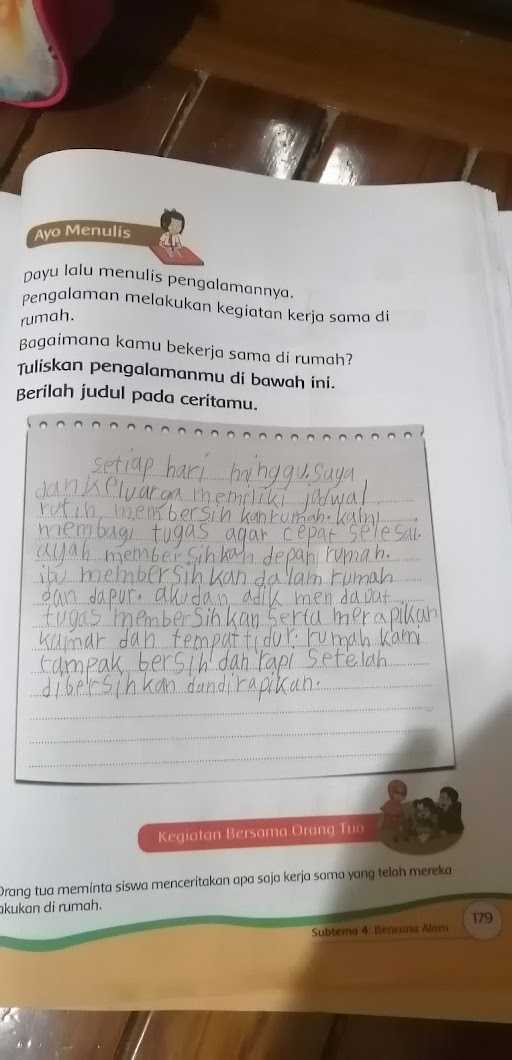 Ayo Menulis
Dayu lalu menulis pengalamannya.
Pengalaman melakukan kegiatan kerja sama di
rumah.
Bagaimana kamu bekerja sama di rumah?
Tuliskan pengalamanmu di bawah ini.
Berilah judul pada ceritamu.
setiap hari minggu. saya
dan keluarga memiliki jadwal
rutin membersih kan rumah. kami
membagi tugas agar cepat selesai.
ayah membersihkan depan rumah.
ibu membersih kan dalam rumah
dan dapur. aku dan adik mendapat
tugas membersihkan serta merapikan
kamar dan tempat tidur. rumah kami
tampak bersih dan rapi setelah
dibersihkan dandirapikan.
Kegiatan Bersama Orang Tua
Orang tua meminta siswa menceritakan apa saja kerja sama yang telah mereka
akukan di rumah.
Subtema 4: Bencana Alam
179